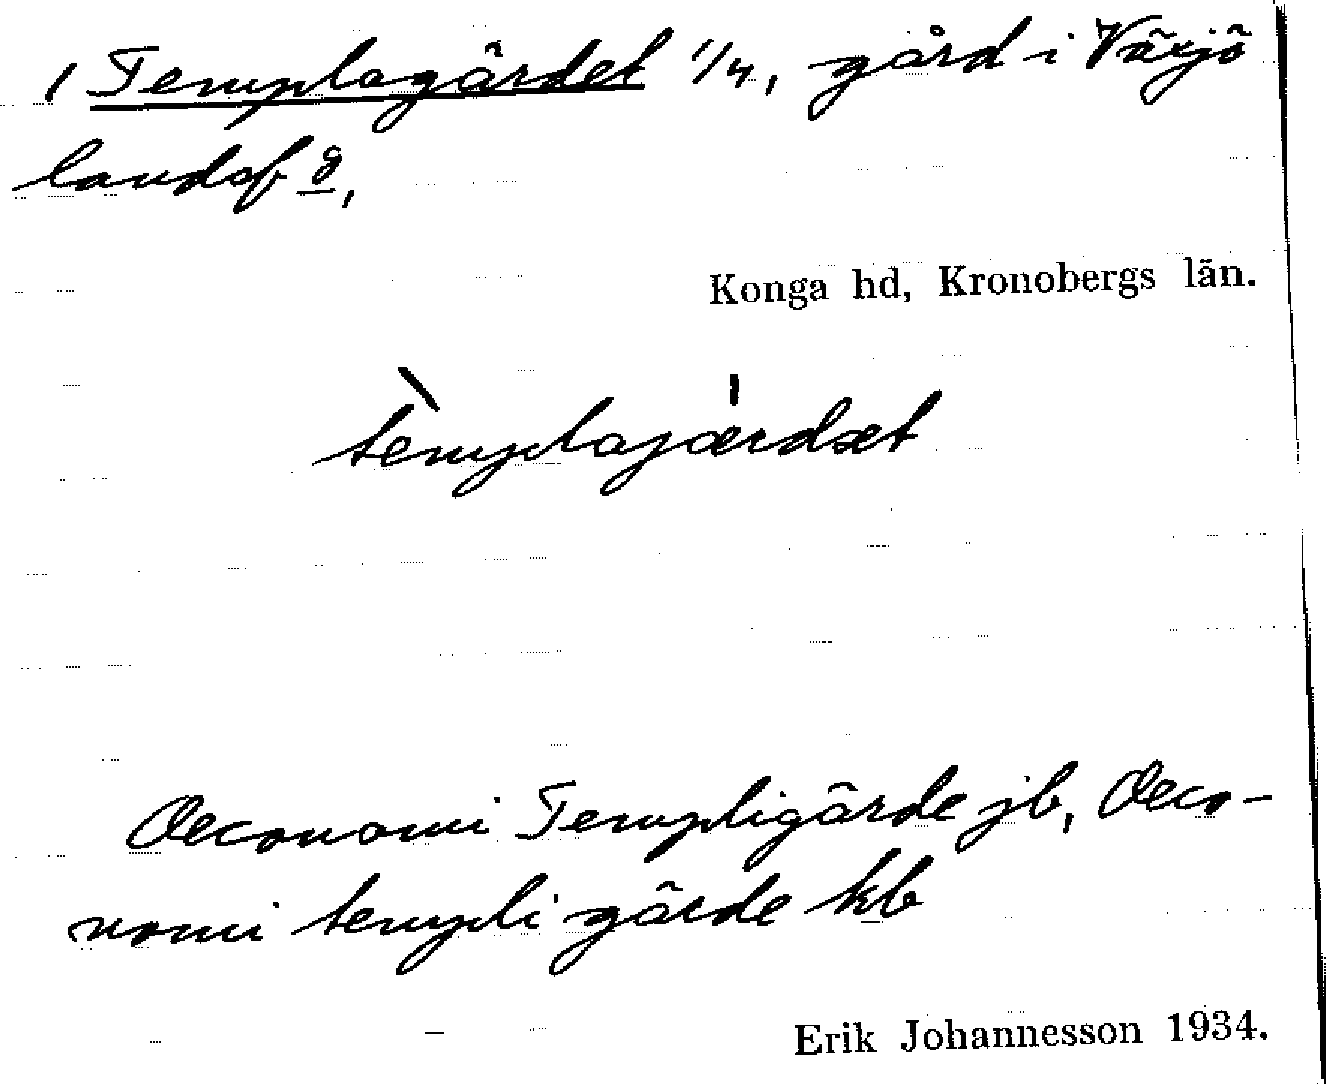 1 Templagärdet 1/4, gård i Växjö
landsf g,
Konga hd, Kronobergs län.
tèmplajærdæt
Oeconomi Templigärde jb, Oeco-
nomi templi gärde kb
Erik Johannesson 1934.